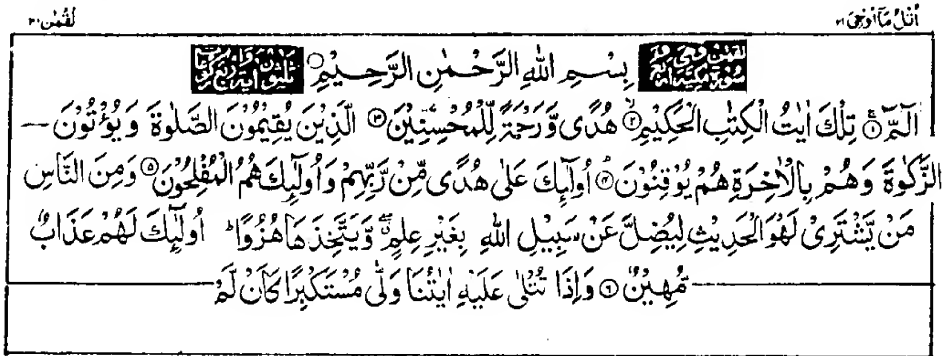 اُتْلُ مَآ اُوْحِیَ ۲۱
لُقْمٰن ۳۱
بِسْمِ اللّٰهِ الرَّحْمٰنِ الرَّحِيْمِ
الٓمّٓ ۚ﴿۱﴾ تِلْكَ اٰيٰتُ الْكِتٰبِ الْحَكِيْمِ ۙ﴿۲﴾ هُدًى وَّرَحْمَةً لِّلْمُحْسِنِيْنَ ﴿۳﴾ الَّذِيْنَ يُقِيْمُوْنَ الصَّلٰوةَ وَيُؤْتُوْنَ
الزَّكٰوةَ وَهُمْ بِالْاٰخِرَةِ هُمْ يُوْقِنُوْنَ ﴿۴﴾ اُولٰٓئِكَ عَلٰى هُدًى مِّنْ رَّبِّهِمْ وَاُولٰٓئِكَ هُمُ الْمُفْلِحُوْنَ ﴿۵﴾ وَمِنَ النَّاسِ
مَنْ يَّشْتَرِیْ لَهْوَ الْحَدِيْثِ لِيُضِلَّ عَنْ سَبِيْلِ اللّٰهِ بِغَيْرِ عِلْمٍ ۖ وَّيَتَّخِذَهَا هُزُوًا ؕ اُولٰٓئِكَ لَهُمْ عَذَابٌ
مُّهِيْنٌ ﴿۶﴾ وَاِذَا تُتْلٰى عَلَيْهِ اٰيٰتُنَا وَلّٰى مُسْتَكْبِرًا كَاَنْ لَّمْ